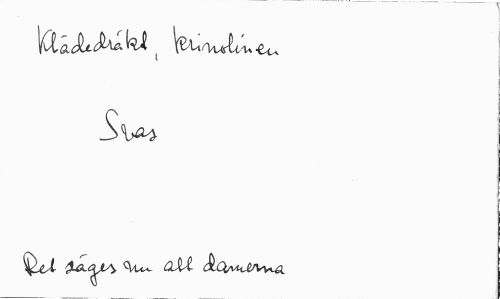 Klädedräkt, krinolinen
Svas
Det säges nu att damerna